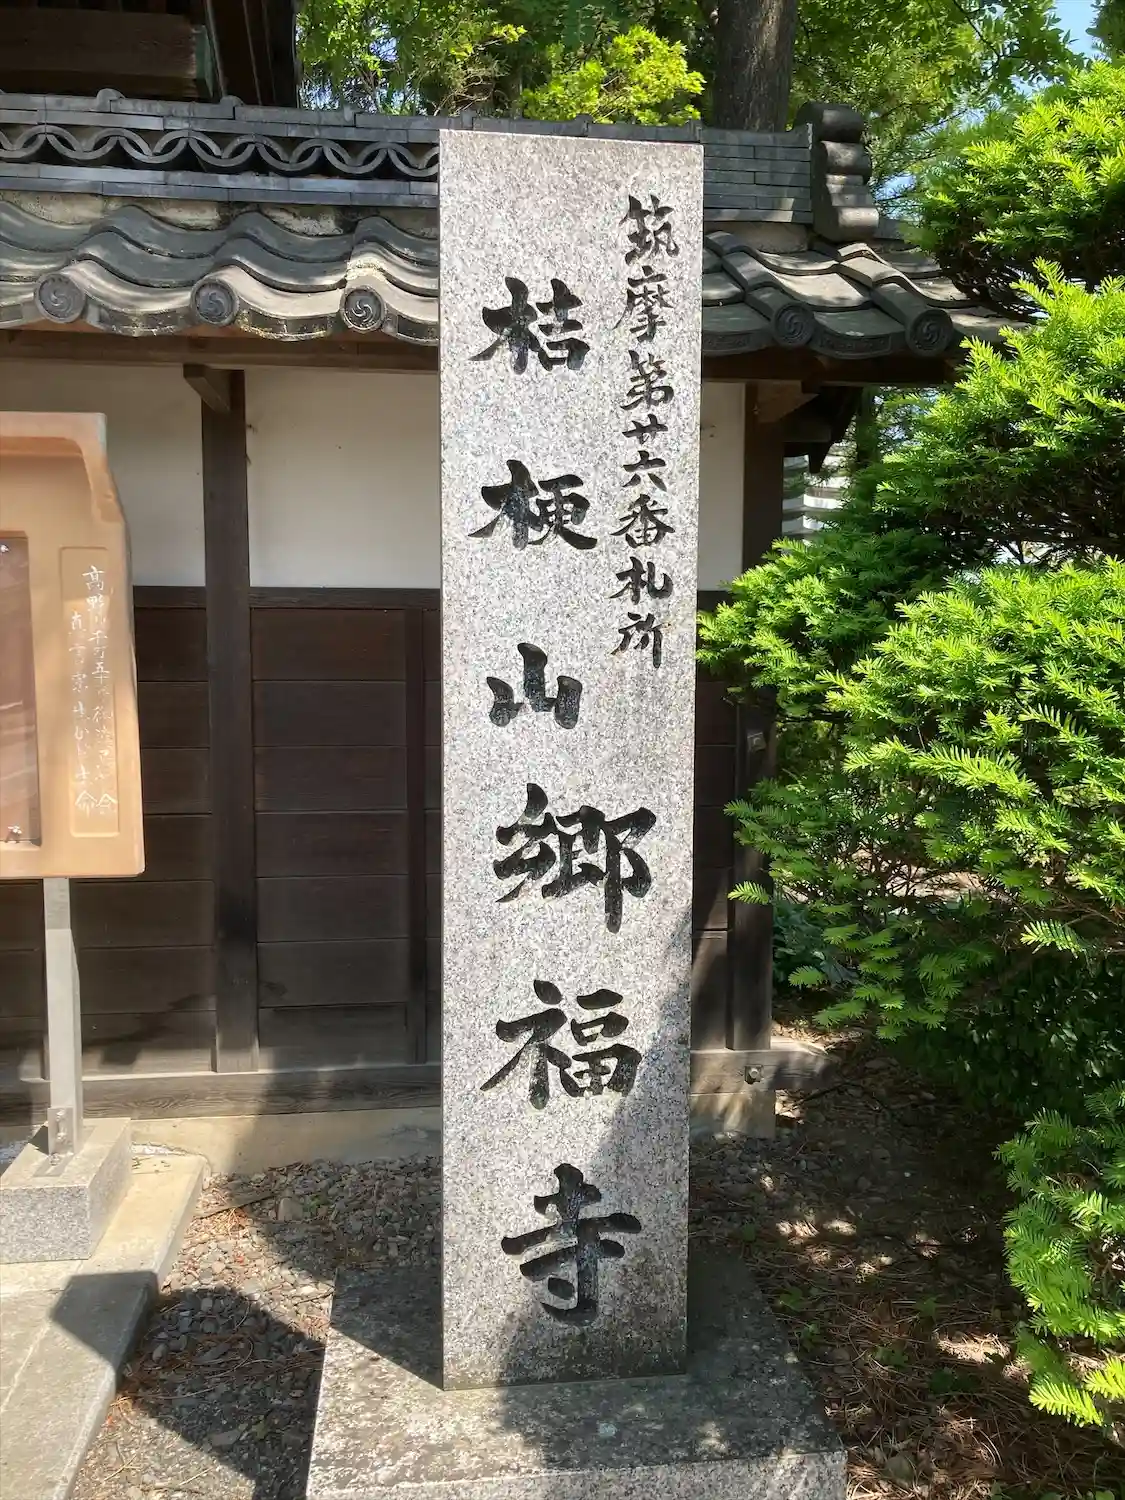 筑摩第廿六番札所
桔梗山郷福寺